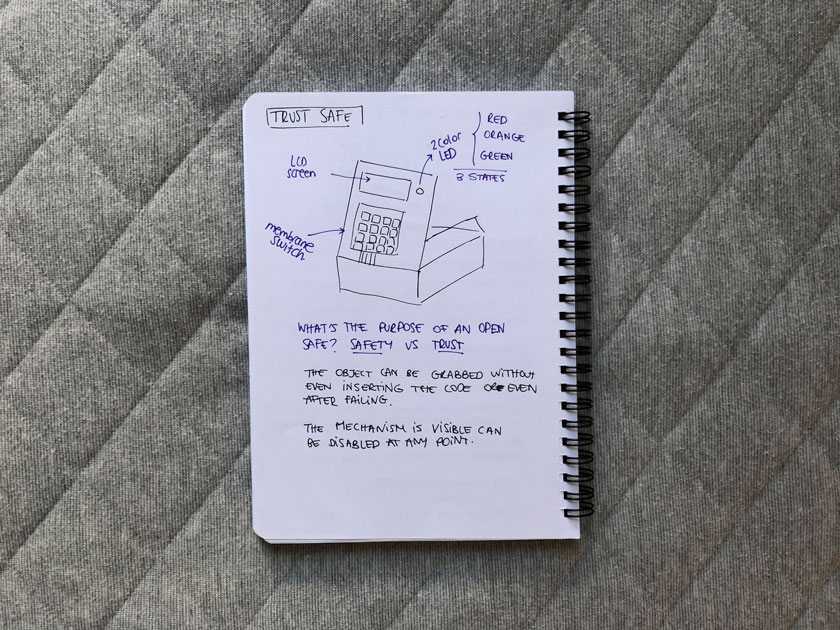 TRUST SAFE
RED
2 color
ORANGE
LED
GREEN
3 STATES
LCD
screen
membrane
switch
WHAT'S THE PURPOSE OF AN OPEN
SAFE? SAFETY VS TRUST
THE OBJECT CAN BE GRABBED WITHOUT
EVEN INSERTING THE CODE OR EVEN
AFTER FAILING.
THE MECHANISM IS VISIBLE CAN
BE DISABLED AT ANY POINT.